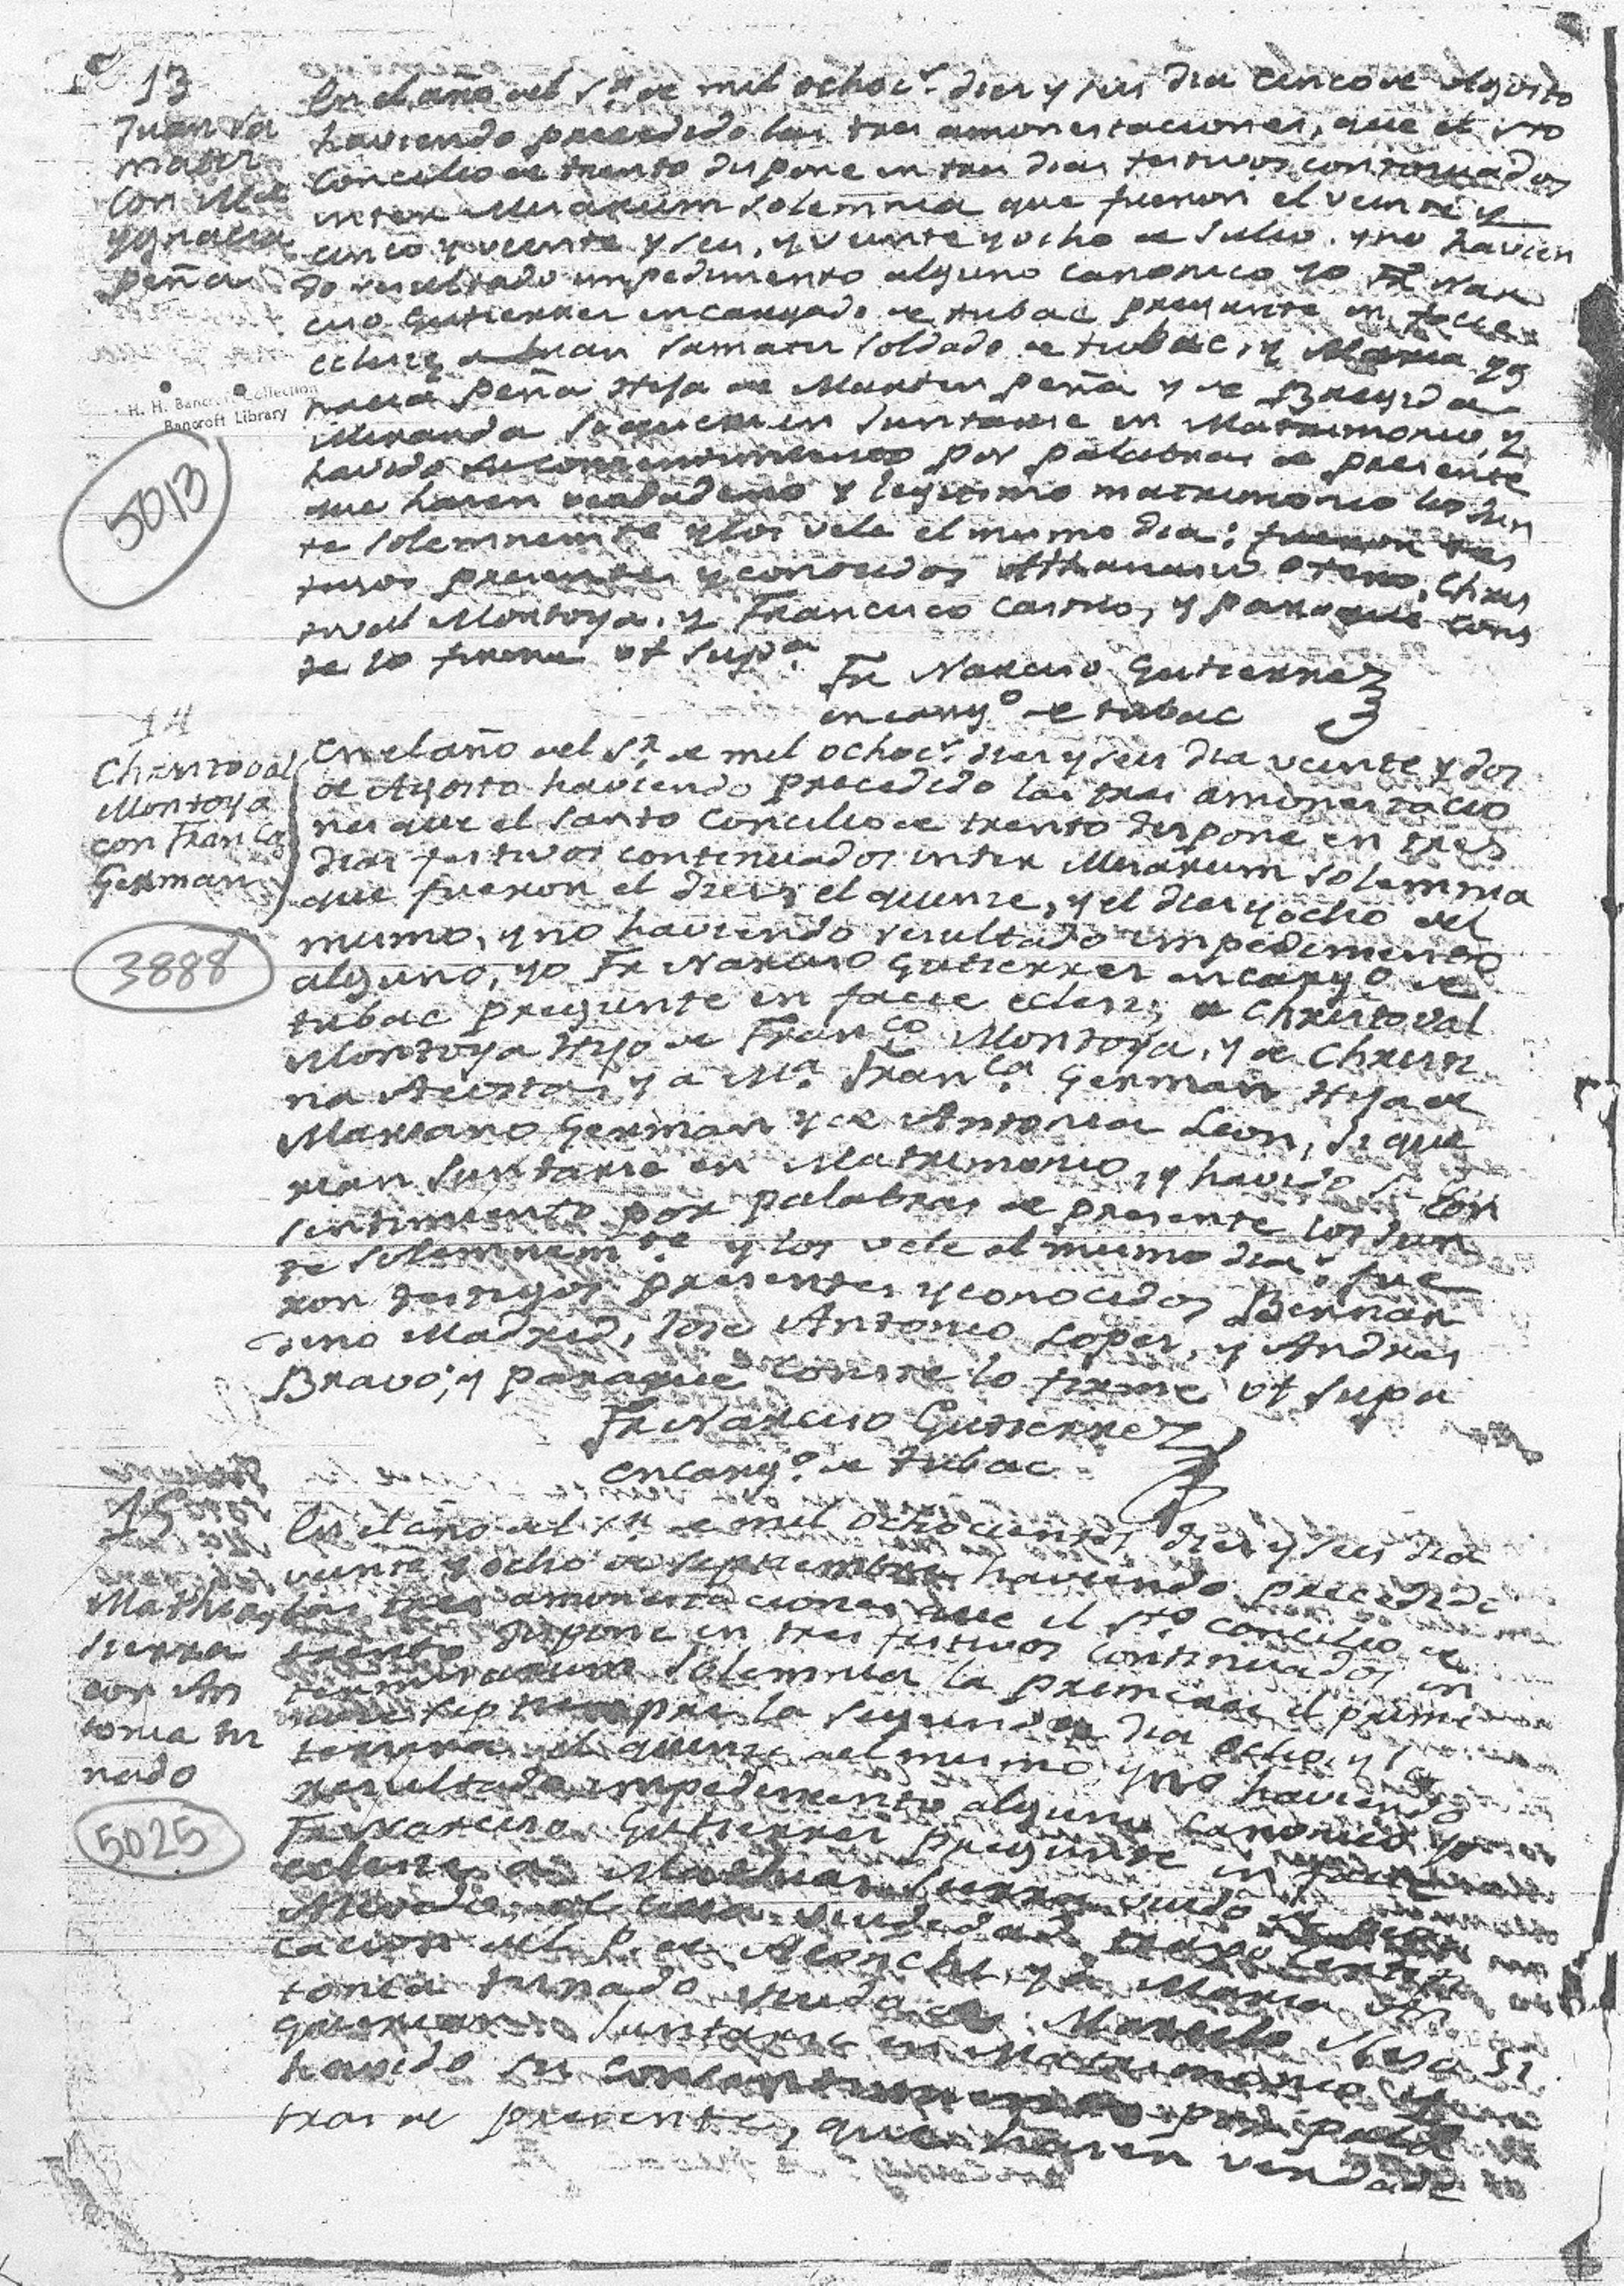 13
Juan Sa
mater
Con Ma
ygnacia
peña
En el año del Sr. de mil ochocs. diez y seis dia cinco de Agosto
haviendo precedido las tres amonestaciones, que el sto
Concilio de trento dispone en tres dias festivos continuados
inter Missarum solemnia que fueron el veinte y
cinco y veinte y seis, y veinte y ocho de Julio. y no havien
do resultado impedimento alguno canonico yo Fr. Nar
ciso Gutierrez encargado de tubac pregunte en facie
eclesię a Juan Samater soldado de tubac, y Maria yg
nacia peña Hija de Martin peña y de Brigida
Miranda si querien Juntarse en Matrimonio, y
havido su consentimiento por palabras de presente
que hacen verdadero y legitimo matrimonio los Jun
te solemnemte y los vele el mismo dia: fueron tes
tigos presentes y conocidos Athanasio Otero, Chris
tival Montoya, y Francisco Castro, y para que cons
te lo firme ut supa.
Fr Narciso Gutierrez
encargo. de tubac
H. H. Bancroft Collection
Bancroft Library
5013
14
Christoval
Montoya
con Franca
German
3888
En el año del Sr. de mil ochocs. diez y seis dia veinte y dos
de Agosto haviendo precedido las tres amonestacio
nes que el Santo Concilio de trento dispone en tres
dias festivos continuados inter Missarum solemnia
que fueron el diez, el quinze, y el diez y ocho del
mismo, y no haviendo resultado impedimento
alguno, yo Fr Narciso Gutierrez encargo de
tubac pregunte en facie eclesię a Christoval
Montoya Hijo de Franco Montoya, y de Christi
na Acosta, y a Ma. Franca. German Hija de
Mariano German y de Antonia Leon, si que
rian Juntarse en Matrimonio, y havido su con
sentimiento por palabras de presente los Jun
te solemnemte y los vele el mismo dia: fue
ron testigos presentes y conocidos Bernar
dino Madrid, Jose Antonio Lopez, y Andres
Bravo; y para que conste lo firme ut supa
Fr Narciso Gutierrez
encargo. de tubac
15
Mathias
Sierra
con An
tonia tu
nado
5025
En el año del Sr. de mil ochocientos diez y seis dia
veinte y ocho de septiembre haviendo precedido
las tres amonestaciones que el sto concilio de
trento dispone en tres festivos continuados in
ter missarum solemnia la primera el prime
septiembre la segunda dia ocho, y la
tercera el quinze del mismo, y no haviendo
resultado impedimento alguno canonico yo
Fr Narciso Gutierrez pregunte in facie
eclesię a Mathias Sierra viudo de
de cuya viudedad traxo certifi
cacion del P. de Aconchi, y a Maria An
tonia tunado viuda de Marcelo si
querian Juntarse en Matrimonio y
havido su consentimiento por pala
bras de presente, que hacen verdade